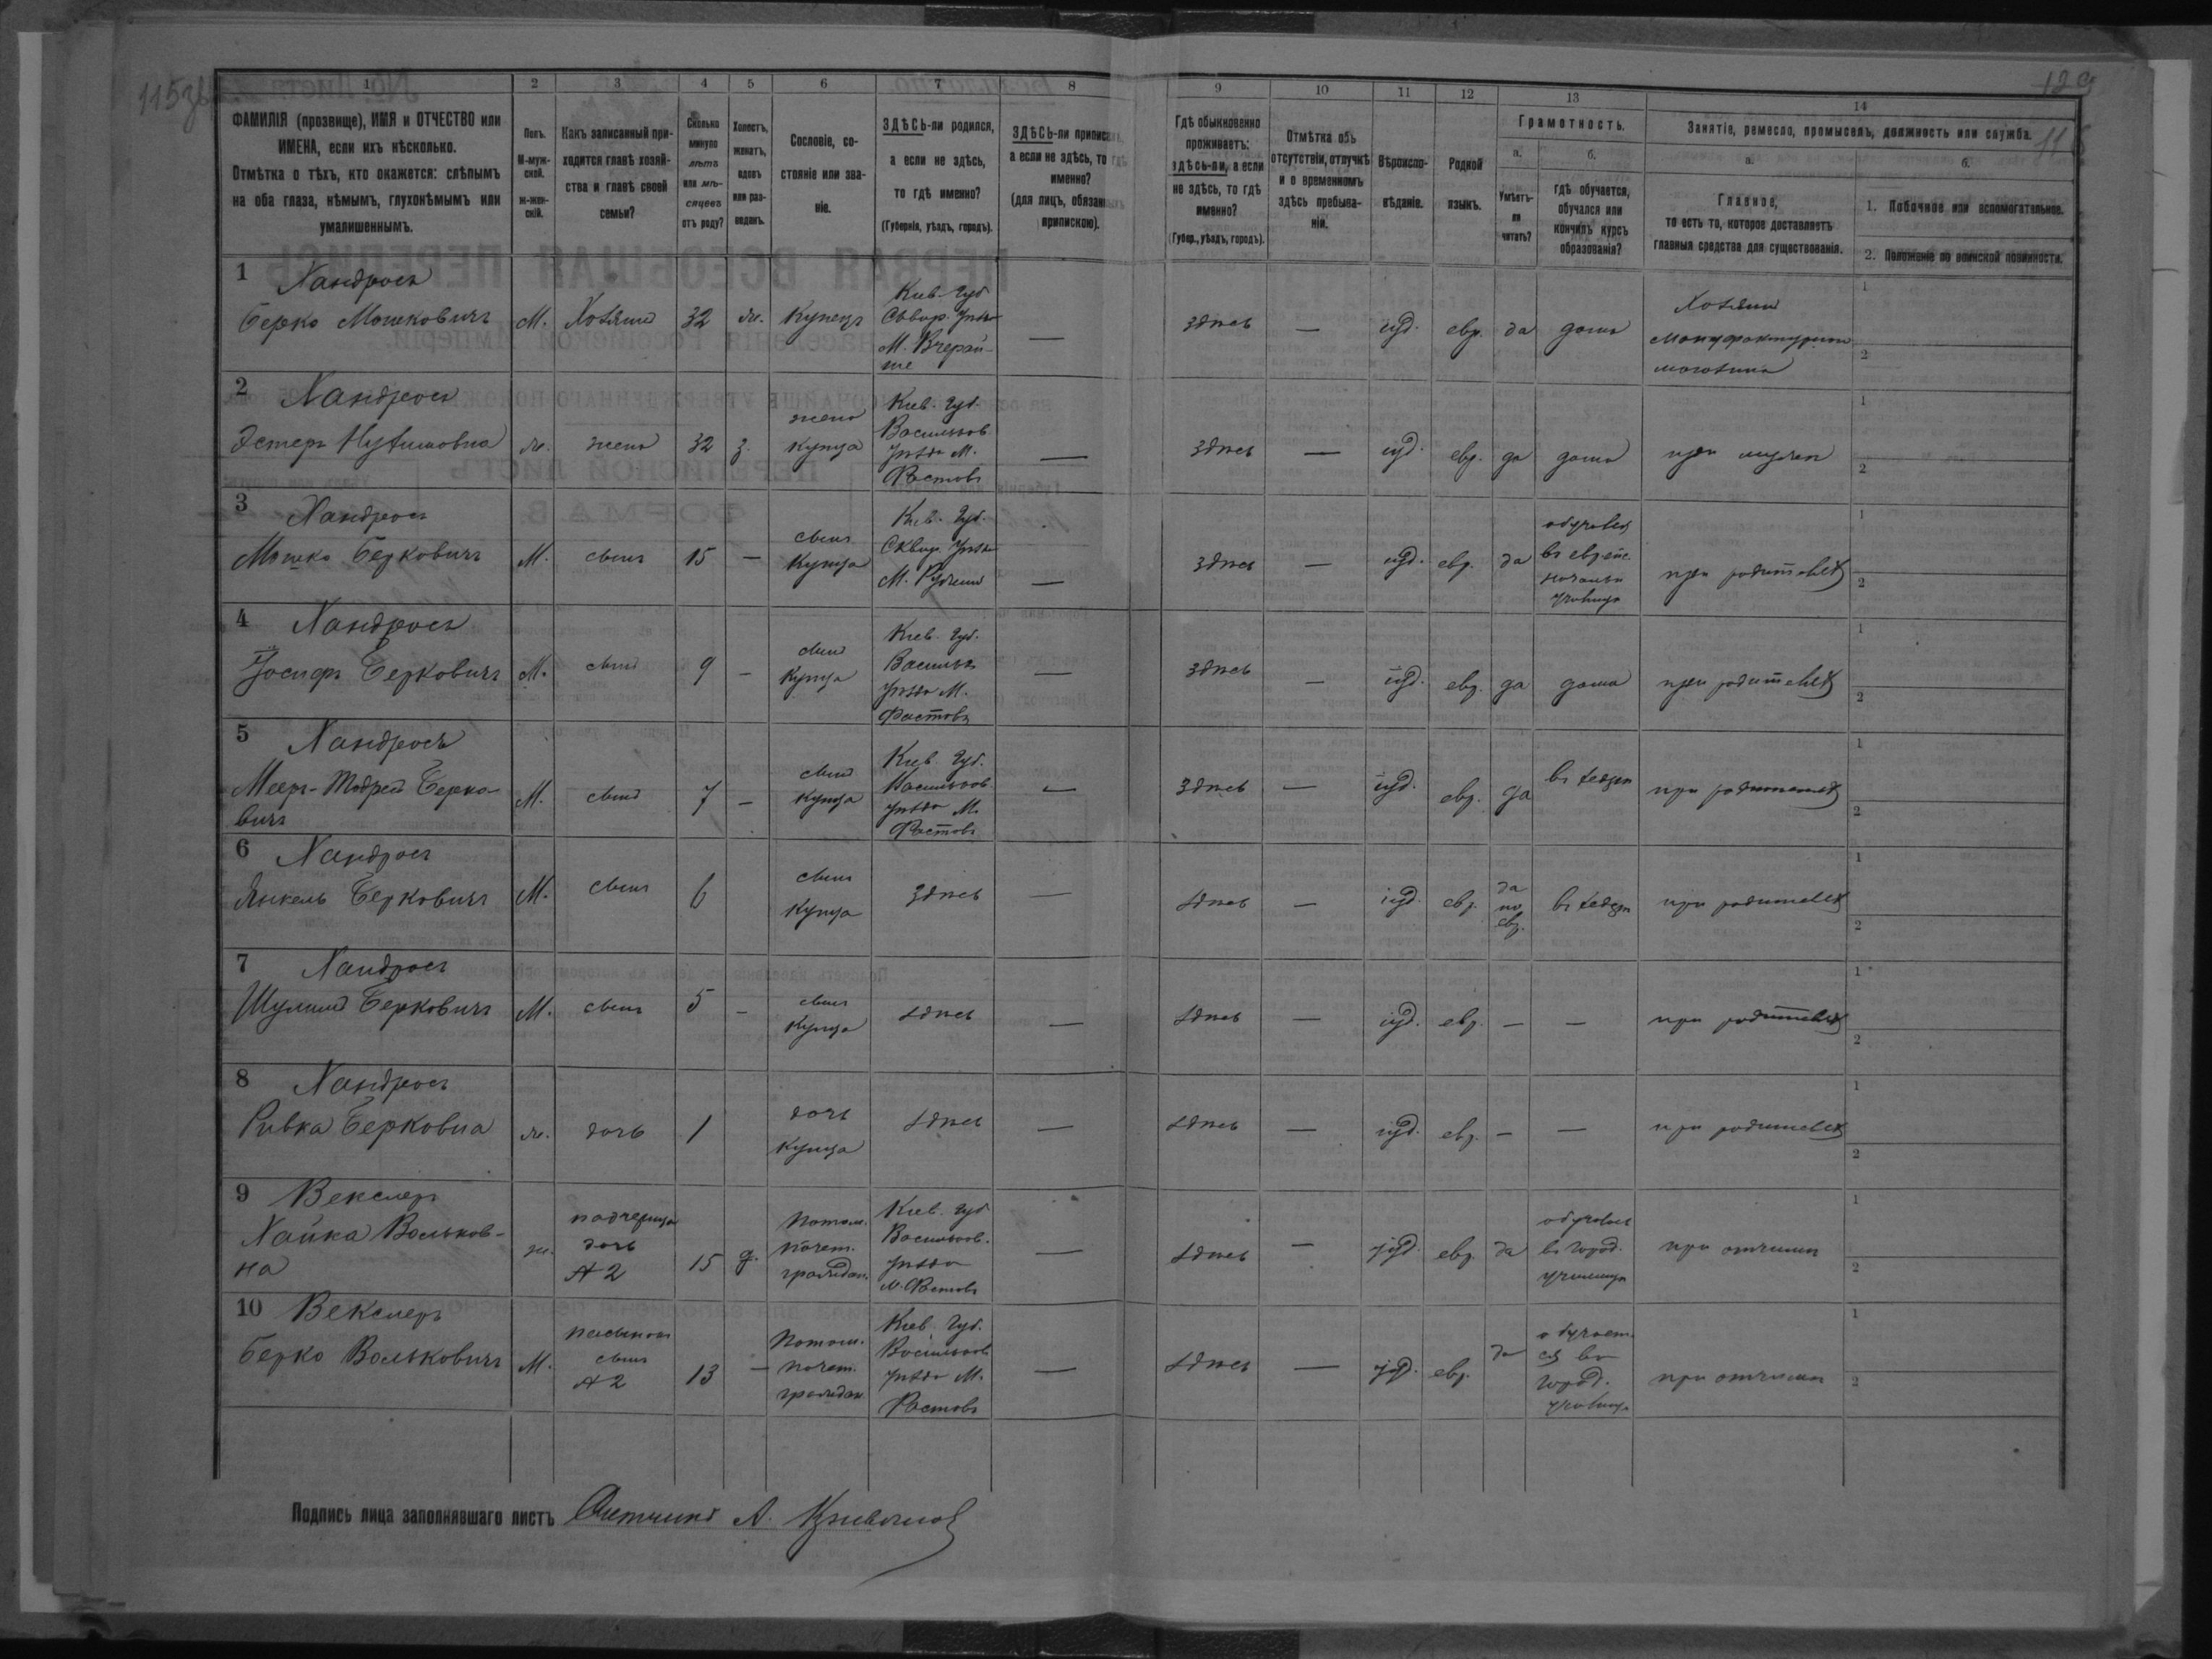 115зв
129
1 2 3 4 5 6 7 8 9 10 11 12 13 14
ФАМИЛІЯ (прозвище), ИМЯ и ОТЧЕСТВО или
ИМЕНА, если ихъ нѣсколько.
Отмѣтка о тѣхъ, кто окажется: слѣпымъ
на оба глаза, нѣмымъ, глухонѣмымъ или
умалишеннымъ.
Полъ.
М-муж-
ской.
ж-жен-
скій.
Какъ записанный при-
ходится главѣ хозяй-
ства и главѣ своей
семьи?
Сколько
минуло
лѣтъ
или мѣ-
сяцевъ
отъ роду?
Холостъ,
женатъ,
вдовъ
или раз-
веденъ.
Сословіе, со-
стояніе или зва-
ніе.
ЗДѢСЬ-ли родился,
а если не здѣсь,
то гдѣ именно?
(Губернія, уѣздъ, городъ).
ЗДѢСЬ-ли приписанъ,
а если не здѣсь, то гдѣ
именно?
(для лицъ, обязанныхъ
припискою).
Гдѣ обыкновенно
проживаетъ:
здѣсь-ли, а если
не здѣсь, то гдѣ
именно?
(Губер., уѣздъ, городъ).
Отмѣтка объ
отсутствіи, отлучкѣ
и о временномъ
здѣсь пребыва-
ніи.
Вѣроиспо-
вѣданіе.
Родной
языкъ.
Грамотность.
а.
Умѣетъ-
ли
читать?
б.
гдѣ обучается,
обучался или
кончилъ курсъ
образованія?
Занятіе, ремесло, промыселъ, должность или служба.
а.
Главное,
то есть то, которое доставляетъ
главныя средства для существованія.
б.
1. Побочное или вспомогательное.
2. Положеніе по воинской повинности.
1 Хандросъ
Берко Мошковичъ М. Хозяинъ 32 ж. Купецъ
Кіев. Губ
Сквир. Уѣзда
М. Вчерай-
ше
—
здѣсь — іуд. евр. да дома
Хозяинъ
мануфактурнаго
магазина
1
2
2 Хандросъ
Эстеръ ж. жена 32 з.
жена
купца
Кіев. Губ.
Васильков.
Уѣзда М.
Фастовъ
—
здѣсь — іуд. евр. да дома при мужѣ
1
2
3 Хандросъ
Мошко Берковичъ М. сынъ 15 —
сынъ
Купца
Кіев. Губ.
Сквир. Уѣзда
М.
—
здѣсь — іуд. евр. да
обучался
въ еврейс.
начальн.
училищѣ
при родителяхъ
1
2
4 Хандросъ
Іосифъ Берковичъ М. сынъ 9 —
сынъ
Купца
Кіев. Губ.
Васильк.
Уѣзда М.
Фастовъ
—
здѣсь — іуд. евр. да дома при родителяхъ
1
2
5 Хандросъ
Мееръ-Тодресъ Берко-
вичъ
М. сынъ 7 —
сынъ
купца
Кіев. Губ.
Васильков.
Уѣзда М.
Фастовъ
—
здѣсь — іуд. евр. да въ хедерѣ при родителяхъ
1
2
6 Хандросъ
Янкель Берковичъ М. сынъ 6
сынъ
Купца
здѣсь —
здѣсь — іуд. евр.
да
по
евр.
въ хедерѣ при родителяхъ
1
2
7 Хандросъ
Шулимъ Берковичъ М. сынъ 5 —
сынъ
Купца
здѣсь —
здѣсь — іуд. евр. — — при родителяхъ
1
2
8 Хандросъ
Ривка Берковна ж. дочь 1
дочь
Купца
здѣсь —
здѣсь — іуд. евр. — — при родителяхъ
1
2
9 Векслеръ
Хайка Вольков-
на
ж.
падчерица
дочь
№ 2
15 д.
Потом.
почет.
граждан.
Кіев. Губ
Васильков.
Уѣзда
м. Фастовъ
—
здѣсь — іуд. евр. да
обучалась
въ город.
училищѣ
при отчимѣ
1
2
10 Векслеръ
Берко Вольковичъ М.
пасынокъ
сынъ
№ 2
13 —
Потом.
почет.
граждан.
Кіев. Губ.
Васильков.
Уѣзда М.
Фастовъ
—
здѣсь — іуд. евр. да
обучает-
ся въ
город.
училищѣ
при отчимѣ
1
2
Подпись лица заполнявшаго листъ